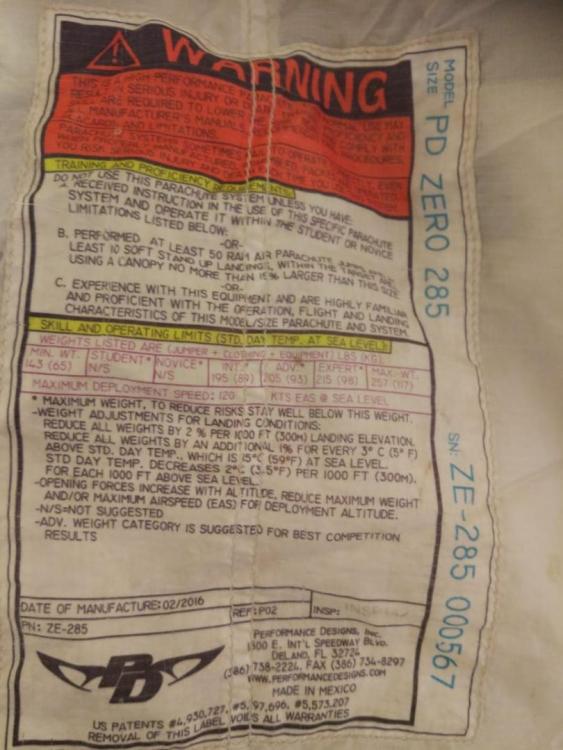 WARNING
THIS IS A HIGH PERFORMANCE
IN SERIOUS INJURY OR
ARE REQUIRED TO LOWER
MANUFACTURER'S MANUALS
AND LIMITATIONS.
TRAINING AND PROFICIENCY REQUIREMENTS:
DO NOT USE THIS PARACHUTE SYSTEM UNLESS YOU HAVE:
A. RECEIVED INSTRUCTION IN THE USE OF THIS SPECIFIC PARACHUTE
SYSTEM AND OPERATE IT WITHIN THE STUDENT OR NOVICE
LIMITATIONS LISTED BELOW:
-OR-
B. PERFORMED AT LEAST 50 RAM AIR PARACHUTE
LEAST 10 SOFT STAND UP LANDINGS, WITHIN THE
USING A CANOPY NO MORE THAN 15% LARGER THAN THIS SIZE
-OR-
C. EXPERIENCE WITH THIS EQUIPMENT AND ARE HIGHLY FAMILIAR
AND PROFICIENT WITH THE OPERATION, FLIGHT AND LANDING
CHARACTERISTICS OF THIS MODEL/SIZE PARACHUTE AND SYSTEM
SKILL AND OPERATING LIMITS (STD. DAY TEMP. AT SEA LEVEL):
WEIGHTS LISTED ARE (JUMPER + CLOTHING + EQUIPMENT) LBS (KG)
MIN. WT. STUDENT* NOVICE* INT.* ADV.* EXPERT* MAX. WT.
143 (65) N/S N/S 195 (89) 205 (93) 215 (98) 257 (117)
MAXIMUM DEPLOYMENT SPEED: 120 KTS EAS @ SEA LEVEL
* MAXIMUM WEIGHT, TO REDUCE RISKS STAY WELL BELOW THIS WEIGHT.
-WEIGHT ADJUSTMENTS FOR LANDING CONDITIONS:
REDUCE ALL WEIGHTS BY 2 % PER 1000 FT (300M) LANDING ELEVATION.
REDUCE ALL WEIGHTS BY AN ADDITIONAL 1% FOR EVERY 3° C (5° F)
ABOVE STD. DAY TEMP., WHICH IS 15°C (59°F) AT SEA LEVEL.
STD DAY TEMP. DECREASES 2°C (3.5°F) PER 1000 FT (300M).
FOR EACH 1000 FT ABOVE SEA LEVEL.
-OPENING FORCES INCREASE WITH ALTITUDE, REDUCE MAXIMUM WEIGHT
AND/OR MAXIMUM AIRSPEED (EAS) FOR DEPLOYMENT ALTITUDE.
-N/S=NOT SUGGESTED
-ADV. WEIGHT CATEGORY IS SUGGESTED FOR BEST COMPETITION
RESULTS
DATE OF MANUFACTURE: 02/2016 REF: P02 INSP:
PN: ZE-285
PD
PERFORMANCE DESIGNS, INC.
1300 E. INT'L SPEEDWAY BLVD.
DELAND, FL 32724
(386) 738-2224, FAX (386) 734-8297
WWW.PERFORMANCEDESIGNS.COM
MADE IN MEXICO
US PATENTS #4,930,727, 97,696, #5,573,207
REMOVAL OF THIS LABEL VOIDS ALL WARRANTIES
MODEL PD ZERO 285
SIZE
SN: ZE-285 000567